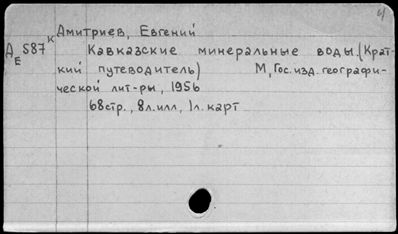 к Дмитриев, Евгений
Д 587 Кавказские минеральные воды. (Крат-
Е кий путеводитель) М, Гос. изд. географи-
ческой лит-ры, 1956
68 стр., 8 л. илл, 1 л. карт